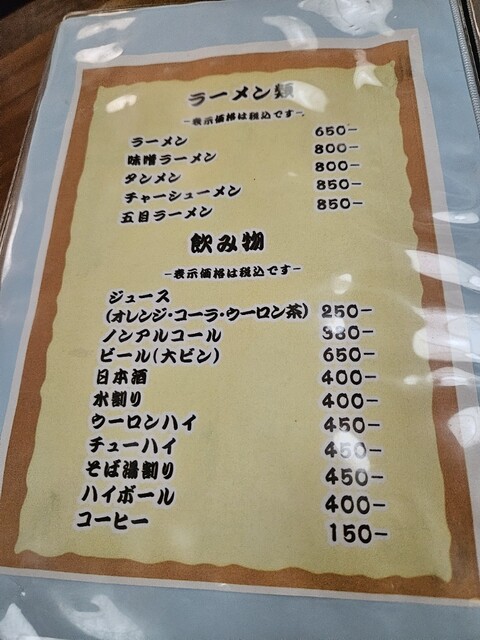 ラーメン類
−表示価格は税込です−
ラーメン 650−
味噌ラーメン 800−
タンメン 800−
チャーシューメン 850−
五目ラーメン 850−
飲み物
−表示価格は税込です−
ジュース
(オレンジ・コーラ・ウーロン茶) 250−
ノンアルコール 380−
ビール(大ビン) 650−
日本酒 400−
水割り 400−
ウーロンハイ 450−
チューハイ 450−
そば湯割り 450−
ハイボール 400−
コーヒー 150−